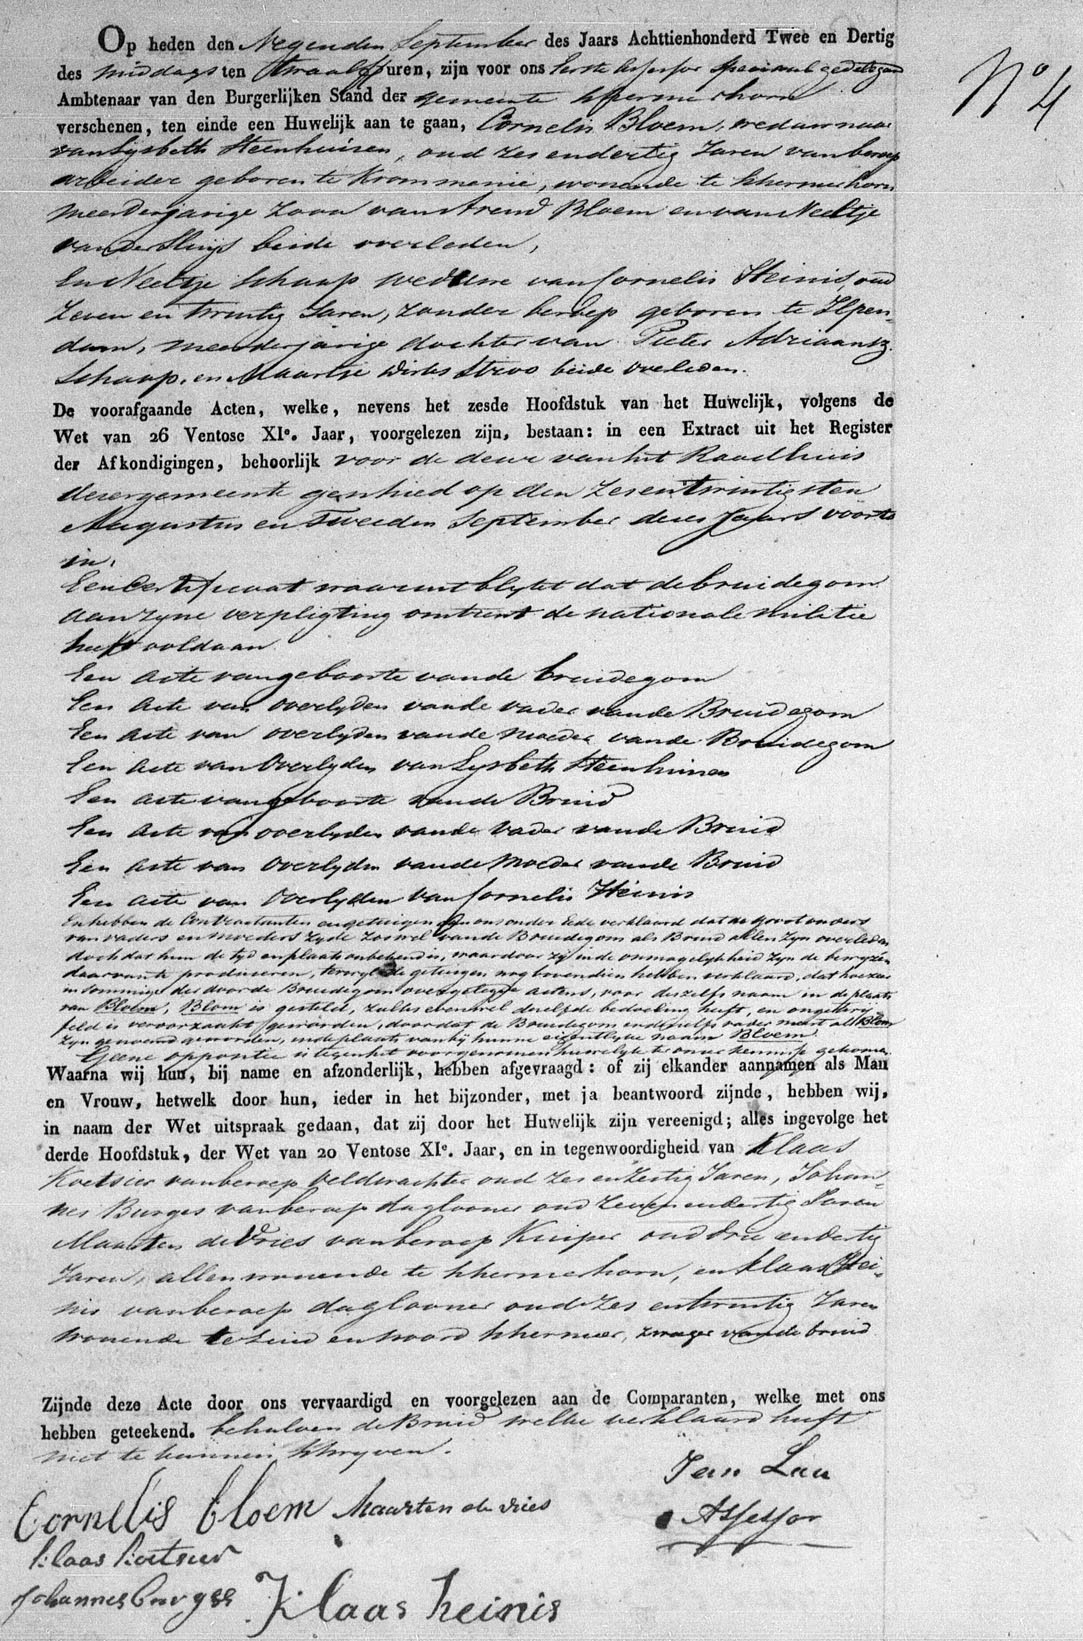 Op heden den Negenden September des Jaars Achttienhonderd Twee en Dertig
des middags ten twaalf uren, zijn voor ons Eerste Assessor speciaal gedelegeerd
Ambtenaar van den Burgerlijken Stand der gemeente Schermerhorn
verschenen, ten einde een Huwelijk aan te gaan, Cornelis Bloem, weduwnaar
van Lijsbeth Steenhuisen, oud zes en dertig Jaren van beroep
arbeider geboren te Krommenie, wonende te Schermerhorn
meerderjarige Zoon van Arend Bloem en van Neeltje
van der Sluijs beide overleden,
En Neeltje Schaap weduwe van Cornelis Heinis, oud
Zeven en twintig Jaren, zonder beroep geboren te Ilpen-
dam, meerderjarige dochter van Pieter Adriaansz.
Schaap, en Maartje Dirks Stroo beide overleden.
De voorafgaande Acten, welke, nevens het zesde Hoofdstuk van het Huwelijk, volgens de
Wet van 26 Ventose XIe. Jaar, voorgelezen zijn, bestaan: in een Extract uit het Register
der Afkondigingen, behoorlijk voor de deur van het Raadhuis
dezer gemeente geschied op den zesentwintigsten
Augustus en tweeden September dezes Jaars voorts
in.
Een Certificaat waaruit blykt dat de bruidegom
aan zyne verpligting omtrent de nationale militie
heeft voldaan
Een acte van geboorte van de bruidegom
Een Acte van overlyden van de vader van de Bruidegom
Een acte van overlyden van de moeder van de Bruidegom
Een Acte van Overlyden van Lysbeth Steenhuisen
Een acte van geboorte van de Bruid
Een Acte van overlyden van de Vader van de Bruid
Een acte van overlyden van de moeder van de Bruid
Een acte van Overlyden van Cornelis Heinis
En hebben de Contractanten en getuigen aan ons onder Eede verklaard dat de Grootouders
van vaders en moeders Zyde zoowel van de Bruidegom als Bruid allen Zyn overleden
doch dat hun de tyd en plaats onbekend is, waardoor zy in de onmogelykheid Zyn de bewyzen
daarvan te produceren, terwyl de getuigen nog bovendien hebben verklaard, dat hoezeer
in sommige der door de Bruidegom overgelegde actens, voor deszelfs naam in de plaats
van Bloem, Blom is gesteld, zulks evenwel dezelfde bedoeling heeft, en ongetwij-
feld is veroorzaakt geworden, doordat de Bruidegom en deszelfs vader meest al Blom
Zyn genoemd geworden, in de plaats van by hunne eigentlyke naam Bloem.
Geene oppositie is tegen het voorgenomen huwelyk te onzer kennisse gekomen
Waarna wij hun, bij name en afzonderlijk, hebben afgevraagd: of zij elkander aannamen als Man
en Vrouw, hetwelk door hun, ieder in het bijzonder, met ja beantwoord zijnde, hebben wij,
in naam der Wet uitspraak gedaan, dat zij door het Huwelijk zijn vereenigd; alles ingevolge het
derde Hoofdstuk, der Wet van 20 Ventose XIe. Jaar, en in tegenwoordigheid van Klaas
Koetsier van beroep Veldwachter oud zes en Jaren, Johan-
nes Burges van beroep daglooner oud Zeven en dertig Jaren
Maarten de Vries van beroep Kuiper oud drie en dertig
Jaren, allen wonende te Schermerhorn, en Klaas Hei-
nis van beroep daglooner oud zes en twintig Jaren
wonende te Zuid en noord Schermer, zwager van de bruid
Zijnde deze Acte door ons vervaardigd en voorgelezen aan de Comparanten, welke met ons
hebben geteekend. behalven de Bruid welke verklaard heeft
niet te kunnen schryven.
Jan Lau
Assessor
Cornelis bloem Maarten de vries
klaas koetsier
Johannes burgess Klaas heinis
No 4